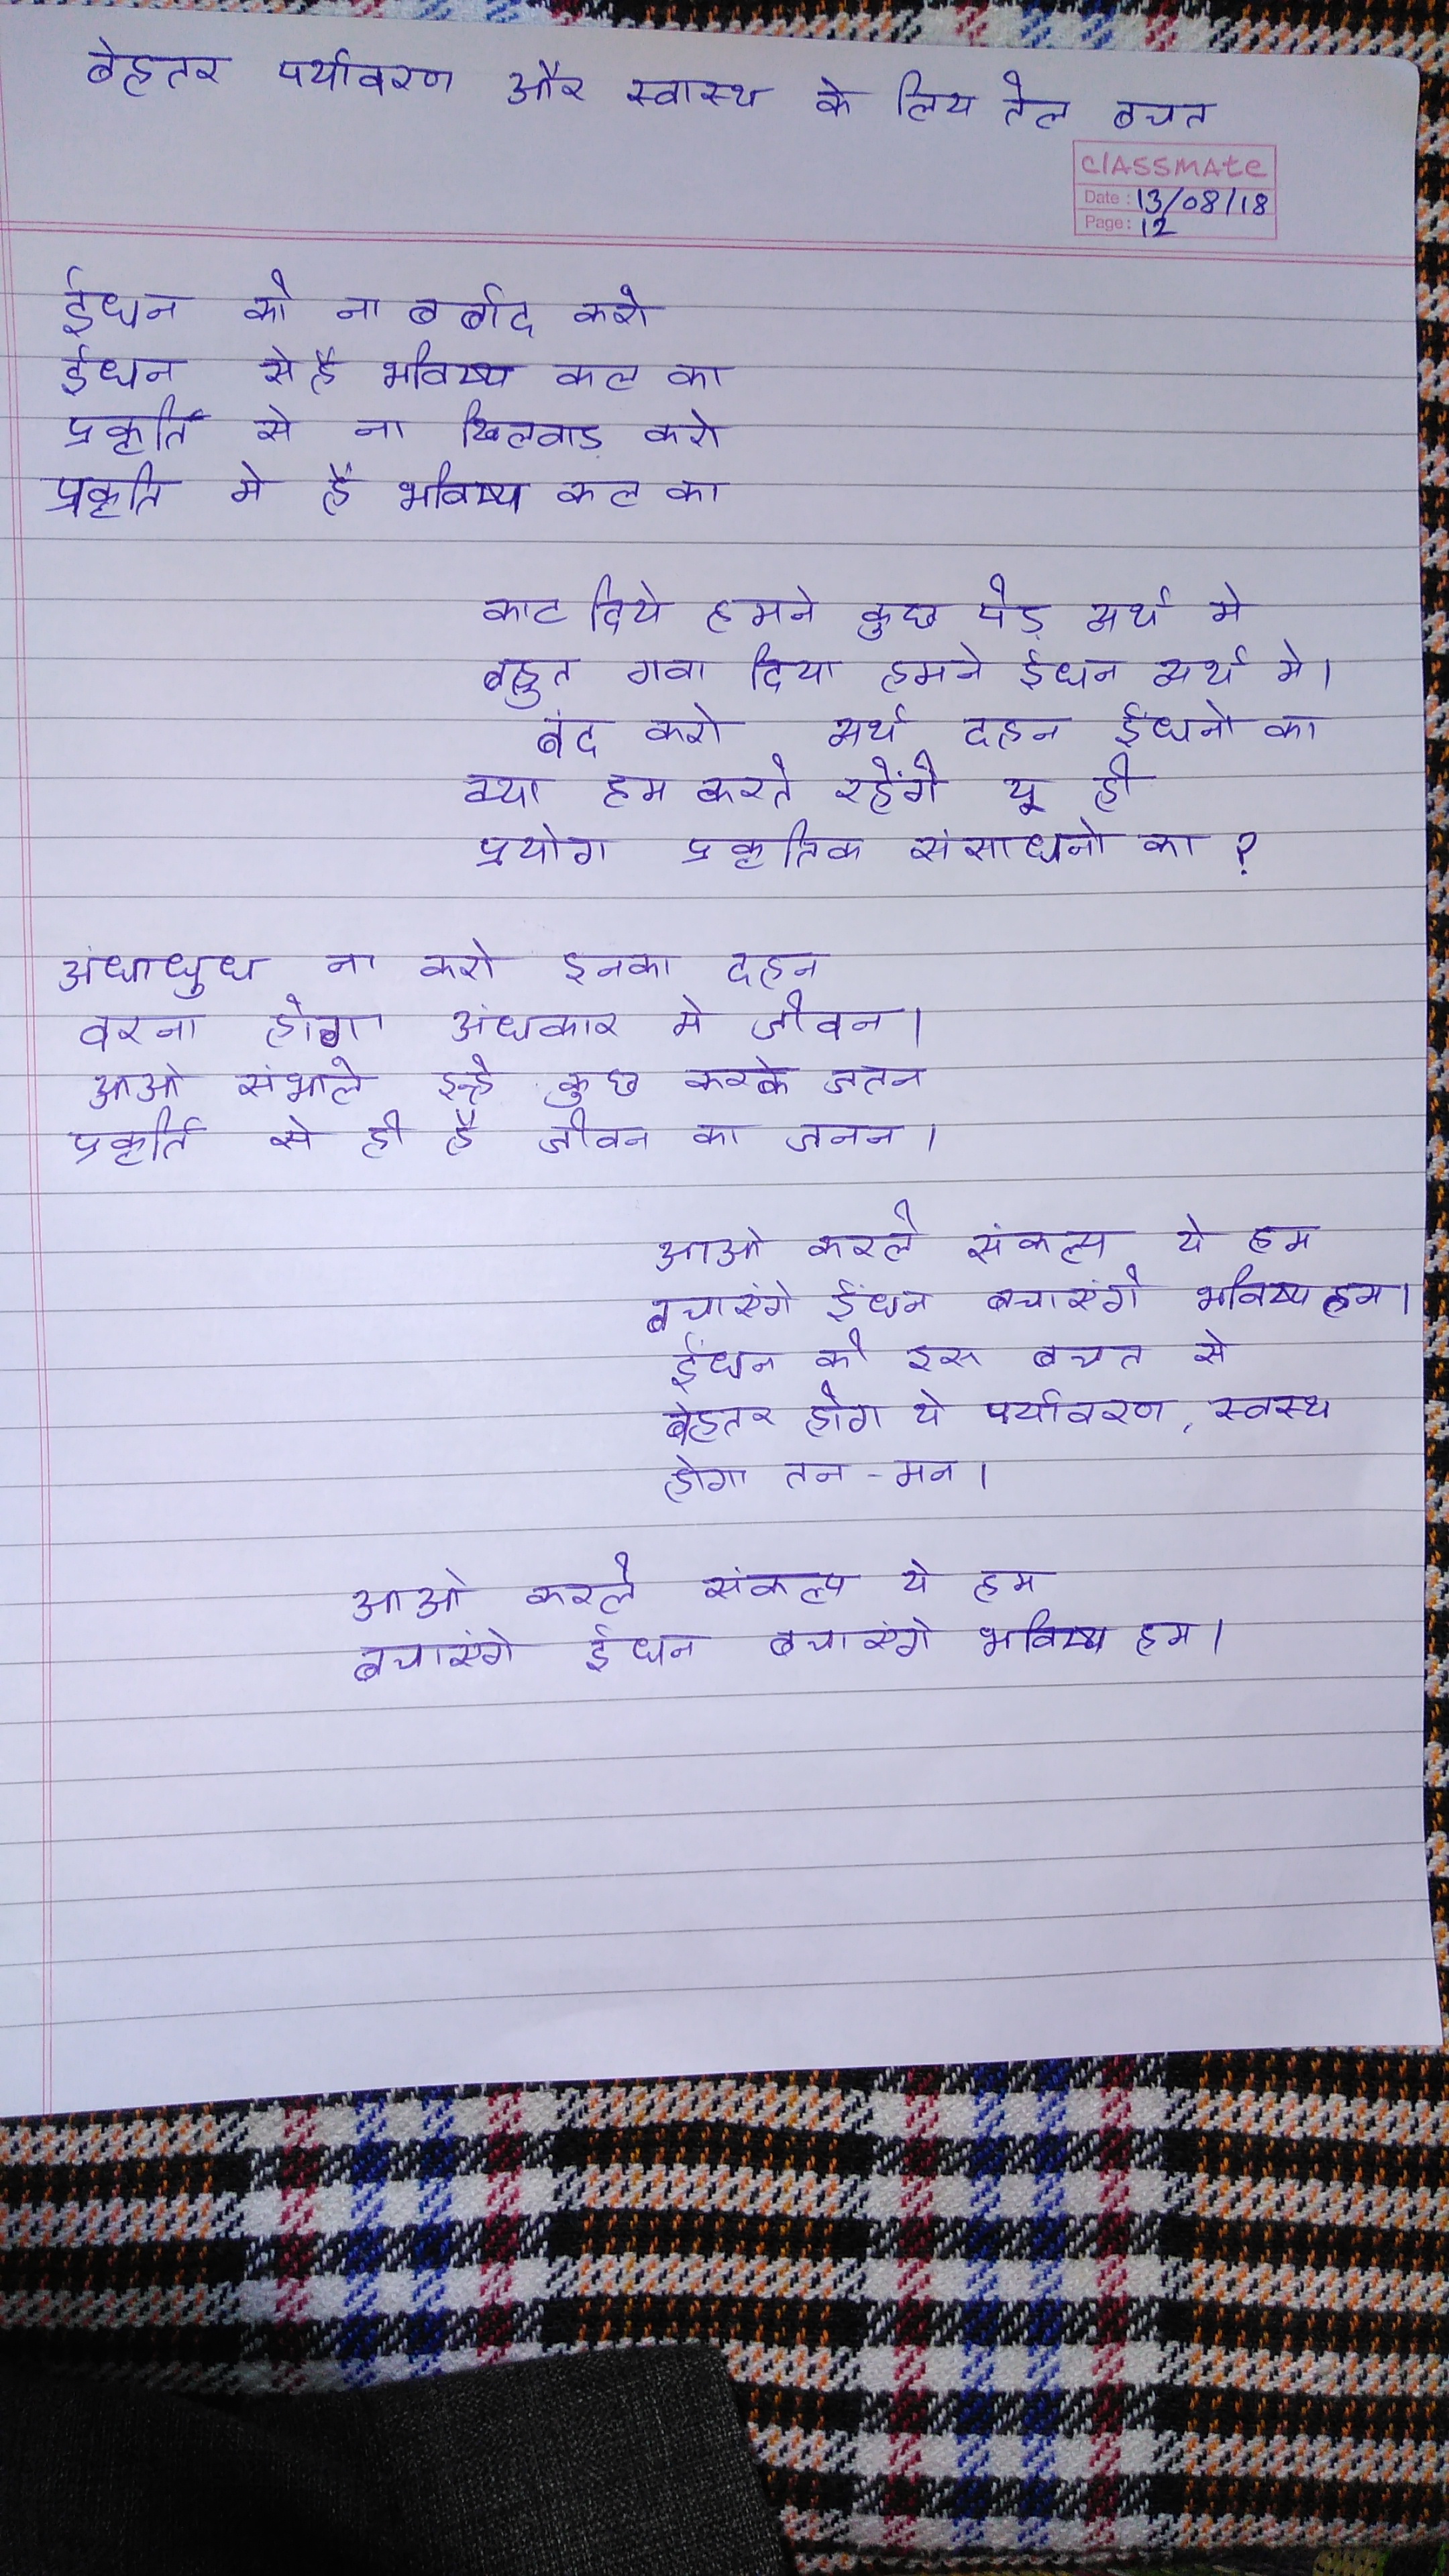 बेहतर पर्यावरण और स्वास्थ के लिय तेल बचत
classmate
Date : 13/08/18
Page : 12
ईधन को ना बर्बाद करो
ईधन से है भविष्य कल का
प्रकृति से ना खिलवाड़ करो
प्रकृति मे है भविष्य कल का
काट दिये हमने कुछ पेड़ व्यर्थ मे
बहुत गवा दिया हमने ईधन व्यर्थ मे।
बंद करो व्यर्थ दहन ईंधनो का
क्या हम करते रहेंगे यू ही
प्रयोग प्रकृतिक संसाधनो का ?
अंधाधुध ना करो इनका दहन
वरना होगा अंधकार मे जीवन।
आओ संभाले इन्हे कुछ करके जतन
प्रकृति से ही है जीवन का जनन।
आओ करले संकल्प ये हम
बचाएंगे ईंधन बचाएंगे भविष्य हम।
ईंधन की इस बचत से
बेहतर होगा ये पर्यावरण, स्वस्थ
होगा तन-मन।
आओ करले संकल्प ये हम
बचाएंगे ईधन बचाएंगे भविष्य हम।